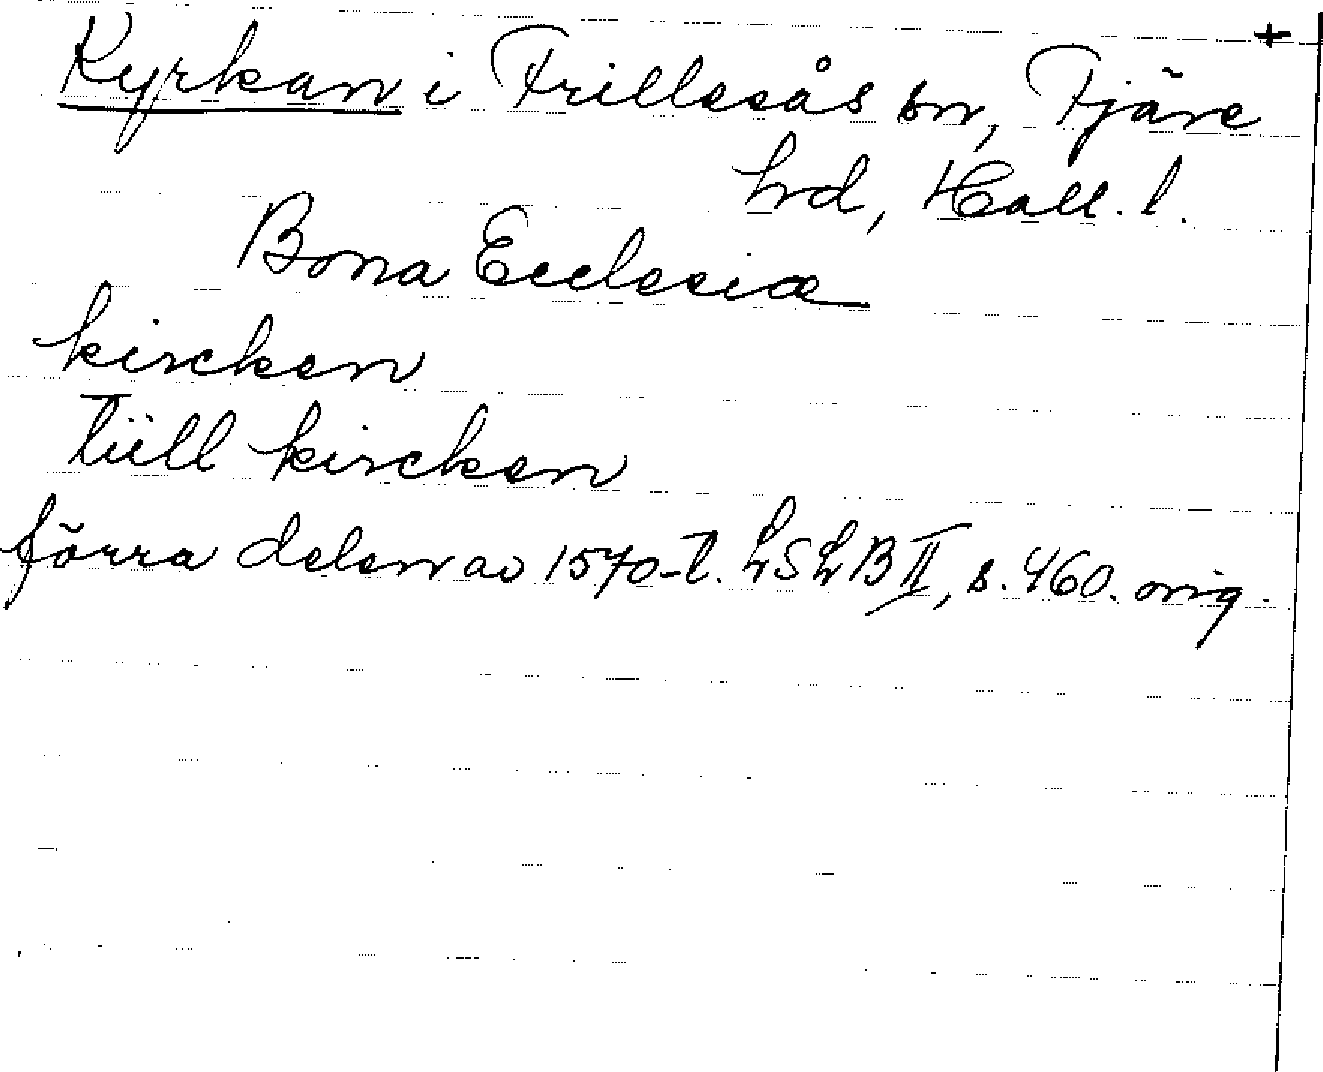 +
Kyrkan i Frillesås sn, Fjäre
hd, Hall. l.
Bona Ecclesiæ
kircken
tiill kircken
förra delen av 1570-t. LSLB II, s. 460. orig.